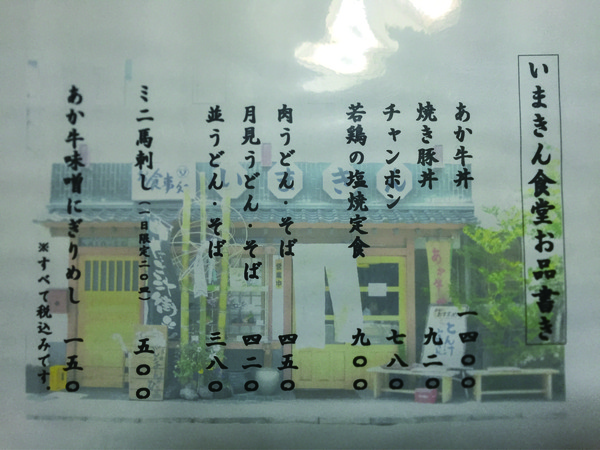 いまきん食堂お品書き
あか牛丼 一四〇〇
焼き豚丼 九二〇
チャンポン 七八〇
若鶏の塩焼定食 九〇〇
肉うどん・そば 四五〇
月見うどん・そば 四二〇
並うどん・そば 三八〇
ミニ馬刺し(一日限定二〇皿) 五〇〇
あか牛味噌にぎりめし 一五〇
※すべて税込みです
いまきん
食事処